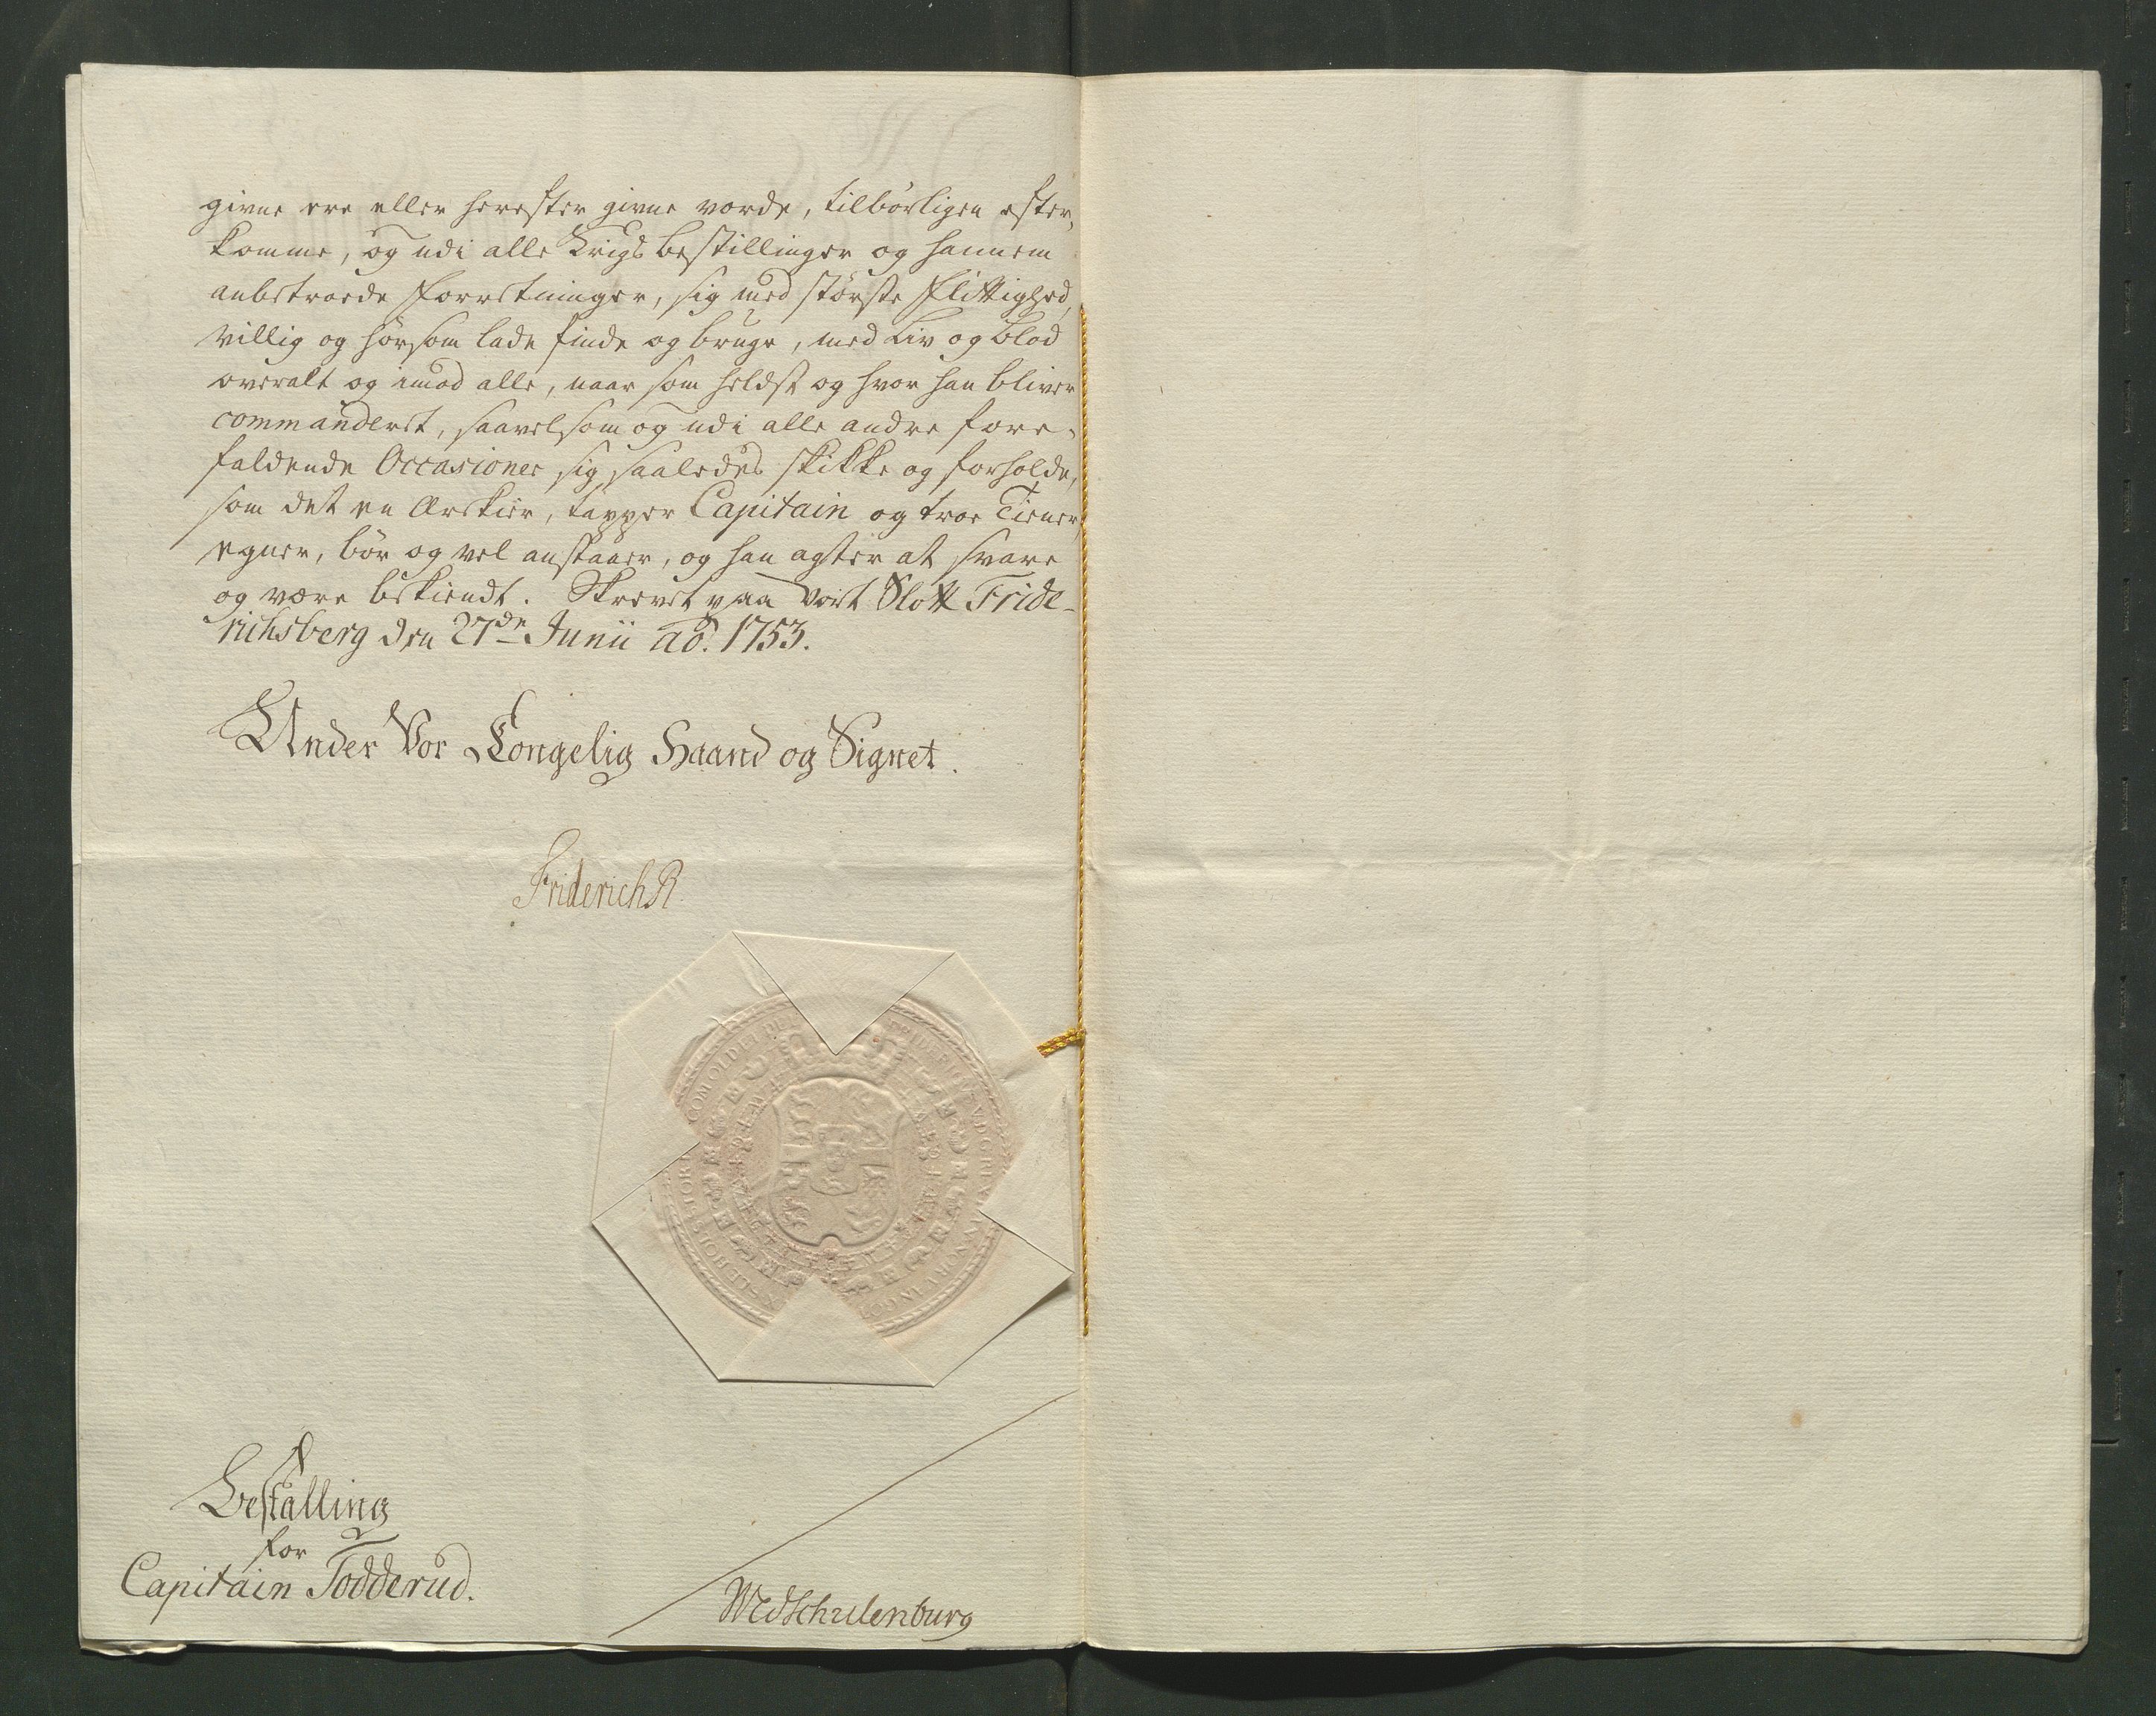 givne ere eller herefter givne vorde, tilbørligen efter-
komme, og udi alle Krigs bestillinger og hannem
anbetroede Forretninger, sig med største Flittighed,
villig og hørsom lade finde og bruge, med Liv og Blod
overalt og imod alle, naar som heldst og hvor han bliver
commanderet, saavelsom og udi alle andre fore-
faldende Occasioner sig saaledes skikke og forholde,
som det en Ærekier, tapper Capitain og troe Tiener
egner, bør og vel anstaaer, og han agter at svare
og være bekiendt. Skrevet paa Vort Slott Fride-
richsberg den 27de Junii ao. 1753.
Under Vor Kongelig Haand og Signet.
Friderich R
Bestalling
for
Capitain Todderud.
WCvSchulenburg